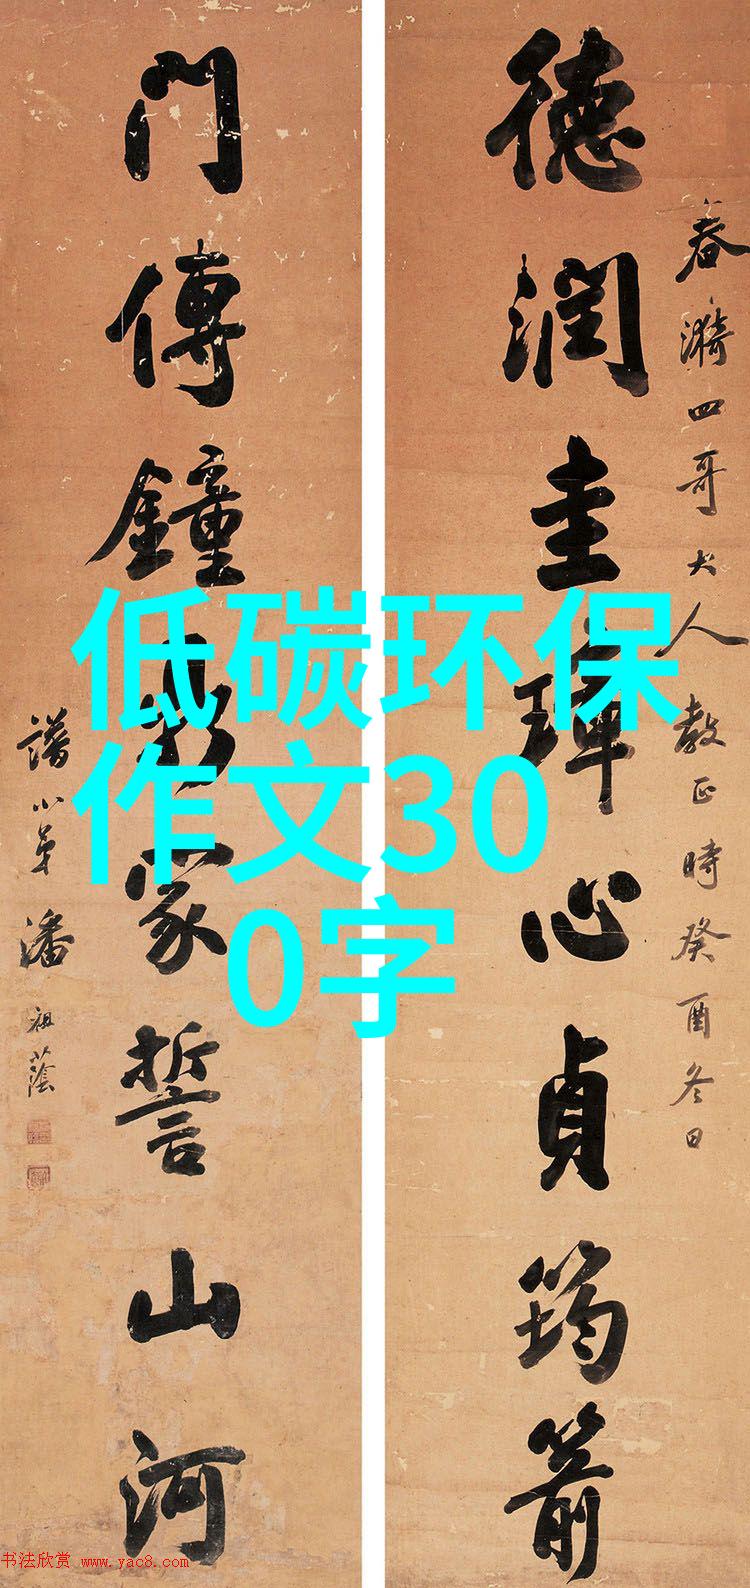 春漪四哥大人教正時癸酉冬日
德潤圭璋心貞筠箭
門傳鐘鼎家誓山河
譜小弟潘祖蔭
低碳环保
作文30
0字
书法欣赏 www.yac8.com